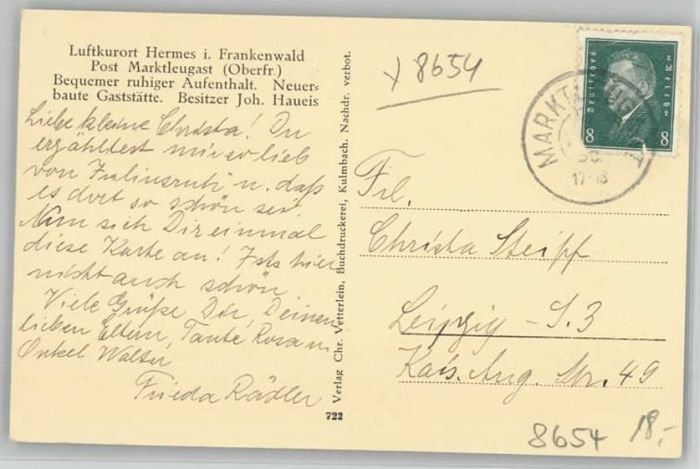 Luftkurort Hermes i. Frankenwald
Post Marktleugast (Oberfr.)
Bequemer ruhiger Aufenthalt. Neuer-
baute Gaststätte. Besitzer Joh. Haueis
Liebe kleine Christa! Du
erzähltest mir so lieb
von Julinsruh u. daß
es dort so schön sei.
Nun sieh Dir einmal
diese Karte an! Ists hier
nicht auch schön.
Viele Grüße Dir, Deinen
lieben Eltern, Tante Rosa u.
Onkel Walter
Frieda Rädler
Verlag Chr. Vetterlein, Buchdruckerei, Kulmbach. Nachdr. verbot.
722
8654
Deutsches Reich
8 8
MARKTLEUGAST
17-18
Frl.
Christa Steipf
Leipzig - S.3
Kais. Aug. Str. 49
8654 18,-